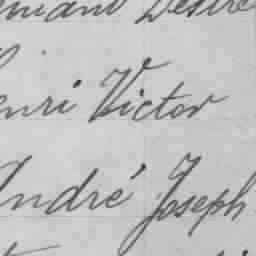 Désiré
Henri Victor
André Joseph